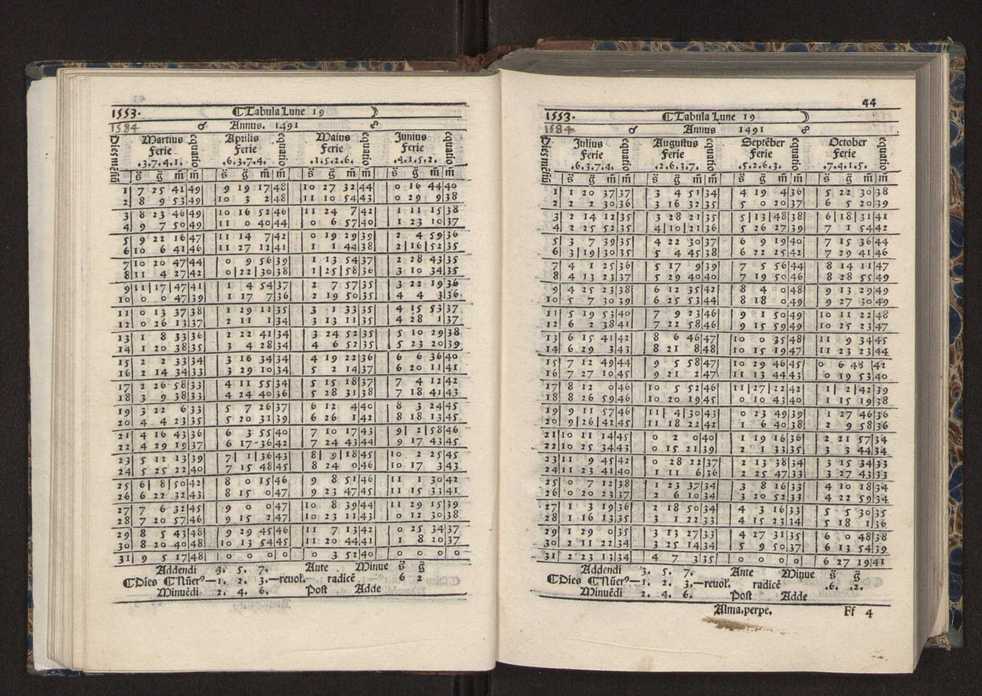 1553.
Tabula Lune 19
1584 ♂ Annus. 1491 ☍
Dies mẽsiũ Martius equatio Aprilis equatio Maius equatio Junius equatio
Ferie Ferie Ferie Ferie
.3.7.4.1. .6.3.7.4. .1.5.2.6. .4.1.5.2.
s̃ g̃ m̃ m̃ s̃ g̃ m̃ m̃ s̃ g̃ m̃ m̃ s̃ g̃ m̃ m̃
1 7 25 41 49 9 19 17 48 10 27 32 44 0 16 44 40
2 8 9 53 49 10 3 2 48 11 10 54 43 0 29 9 38
3 8 23 46 49 10 16 52 46 11 24 7 42 1 11 15 38
4 9 7 50 49 11 0 40 44 0 6 57 40 1 23 10 37
5 9 22 16 47 11 14 7 42 0 19 29 39 2 4 59 36
6 10 6 41 46 11 27 12 41 1 1 44 38 2 16 52 35
7 10 20 47 44 0 9 56 39 1 13 54 37 2 28 43 35
8 11 4 27 42 0 22 30 38 1 25 58 36 3 10 34 35
9 11 17 47 41 1 4 54 37 2 7 57 35 3 22 19 36
10 0 0 47 39 1 17 7 36 2 19 50 35 4 4 3 36
11 0 13 37 38 1 29 11 35 3 1 33 35 4 15 53 37
12 0 26 13 37 2 11 1 34 3 13 11 35 4 28 1 37
13 1 8 33 36 2 22 41 34 3 24 52 35 5 10 29 38
14 1 20 38 35 3 4 28 34 4 6 52 35 5 23 20 39
15 2 2 33 34 3 16 34 34 4 19 22 36 6 6 36 40
16 2 14 34 33 3 29 10 34 5 2 14 37 6 20 11 41
17 2 26 58 33 4 11 55 34 5 15 18 37 7 4 12 42
18 3 9 38 33 4 24 40 36 5 28 31 38 7 18 41 43
19 3 22 6 33 5 7 26 37 6 12 4 40 8 3 24 45
20 4 4 23 35 5 20 31 39 6 26 1 42 8 18 13 45
21 4 16 43 36 6 3 55 40 7 10 17 43 9 2 58 46
22 4 29 19 37 6 17 36 42 7 24 43 44 9 17 43 45
23 5 12 13 39 7 1 36 43 8 9 18 45 10 2 25 45
24 5 25 22 40 7 15 48 45 8 24 0 46 10 17 3 43
25 6 8 50 42 8 0 15 46 9 8 51 46 11 1 30 42
26 6 22 32 43 8 15 0 47 9 23 47 45 11 15 33 41
27 7 6 32 45 9 0 0 47 10 8 39 44 11 29 15 39
28 7 20 57 46 9 15 2 47 10 23 11 43 0 12 30 38
29 8 5 43 48 9 29 45 46 11 7 13 42 0 25 34 37
30 8 20 40 48 10 13 54 45 11 20 44 41 1 8 10 37
31 9 5 17 48 0 0 0 0 0 3 51 40 0 0 0 0
Addendi 3. 5. 7. Ante Minue s̃ g̃
Dies Nũerꝰ—1. 2. 3.—reuol. radicẽ 6 2
Minuẽdi 2. 4. 6. Post Adde
44
1553.
Tabula Lune 19
1584 ♂ Annus 1491 ☍
Dies mẽsiũ Julius equatio Augustus equatio Septẽber equatio October equatio
Ferie Ferie Ferie Ferie
.6.3.7.4. .2.6.3.7. .5.2.6.3. .7.4.1.5.
s̃ g̃ m̃ m̃ s̃ g̃ m̃ m̃ s̃ g̃ m̃ m̃ s̃ g̃ m̃ m̃
1 1 20 37 37 3 4 51 34 4 19 4 36 5 22 30 38
2 2 2 30 36 3 16 32 35 5 0 20 37 6 5 20 39
3 2 14 12 35 3 28 21 35 5 13 48 38 6 18 31 41
4 2 25 52 35 4 10 21 36 5 26 27 39 7 1 54 42
5 3 7 39 35 4 22 30 37 6 9 19 40 7 15 36 44
6 3 19 30 35 5 4 45 38 6 22 25 42 7 29 41 46
7 4 1 25 36 5 17 9 39 7 5 56 44 8 14 11 47
8 4 13 23 37 5 29 40 40 7 19 50 46 8 28 55 49
9 4 25 23 38 6 12 35 42 8 4 0 48 9 13 29 49
10 5 7 30 39 6 25 53 44 8 18 0 49 9 27 30 49
11 5 19 53 40 7 9 23 46 9 1 50 49 10 11 22 48
12 6 2 38 41 7 22 58 46 9 15 59 49 10 25 23 47
13 6 15 41 42 8 6 46 47 10 0 35 48 11 9 34 45
14 6 29 3 43 8 21 8 48 10 15 19 47 11 23 23 44
15 7 12 49 44 9 5 58 47 10 29 46 45 0 6 48 42
16 7 27 10 45 9 21 2 47 11 13 44 43 0 19 53 40
17 8 12 0 46 10 5 52 46 11 27 22 42 1 2 42 39
18 8 26 59 46 10 20 19 45 0 10 43 40 1 15 19 38
19 9 11 57 46 11 4 30 43 0 23 49 39 1 27 46 36
20 9 26 42 45 11 18 22 42 1 6 40 38 2 9 58 36
21 10 11 14 45 0 2 0 40 1 19 16 36 2 21 57 34
22 10 25 34 43 0 15 21 39 2 1 33 35 3 3 44 34
23 11 9 45 42 0 28 22 37 2 13 38 34 3 15 34 33
24 11 23 41 40 1 11 6 36 2 25 47 33 3 27 43 33
25 0 7 12 38 1 23 37 34 3 8 16 33 4 10 28 34
26 0 20 23 37 2 6 10 34 3 20 52 33 4 22 59 34
27 1 3 19 36 2 18 50 34 4 3 16 33 5 5 30 35
28 1 16 13 35 3 1 22 33 4 15 23 34 5 18 1 36
29 1 29 0 35 3 13 27 33 4 27 31 35 6 0 48 38
30 2 11 22 34 3 25 14 34 5 9 50 37 6 13 54 39
31 2 23 13 34 4 7 3 35 0 0 0 0 6 27 19 41
Addendi 3. 5. 7. Ante Minue s̃ g̃
Dies Nũerꝰ—1. 2. 3.—reuol. radicẽ .6. .2.
Minuẽdi 2. 4. 6. Post Adde
Alma.perpe. Ff 4